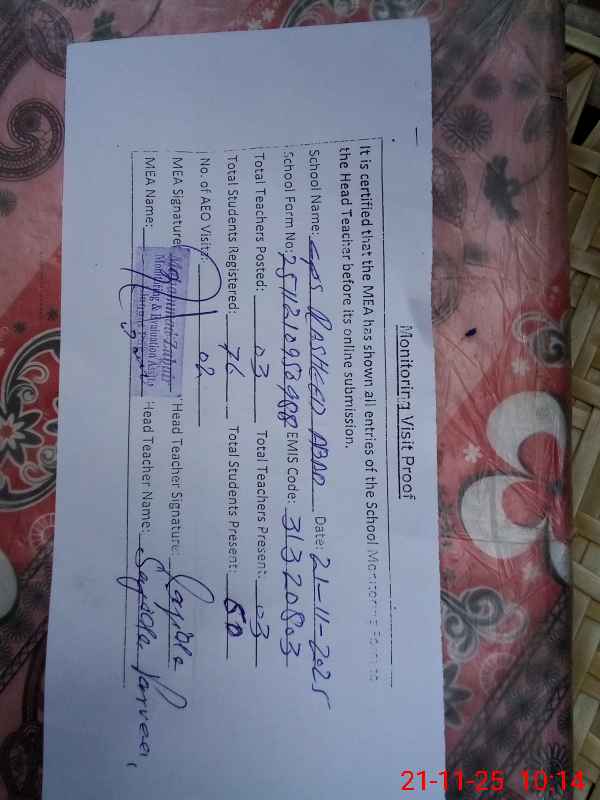 Monitoring Visit Proof
It is certified that the MEA has shown all entries of the School Monitoring Form to
the Head Teacher before its online submission.
School Name: GPS RASHEED ABAD Date: 21-11-2025
School Form No: EMIS Code: 31320803
Total Teachers Posted: 03 Total Teachers Present: 03
Total Students Registered: 76 Total Students Present: 60
No. of AEO Visits: 02
MEA Signature: Head Teacher Signature: Sajida
Monitoring & Evaluation
MEA Name: Head Teacher Name: Sajida Parveen
21-11-25 10:14